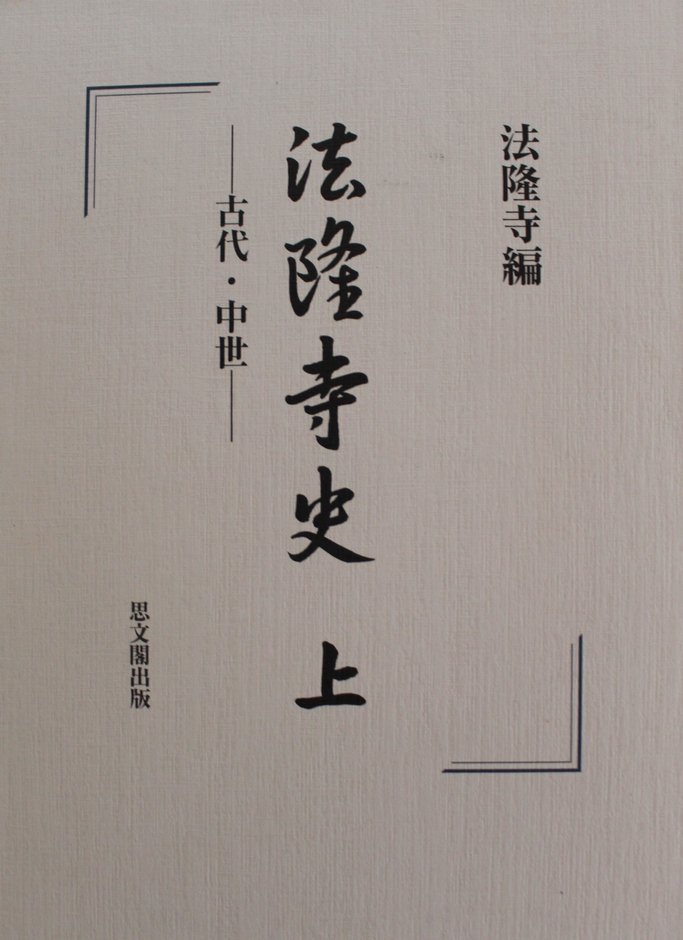 法隆寺編
法隆寺史 上
―古代・中世―
思文閣出版